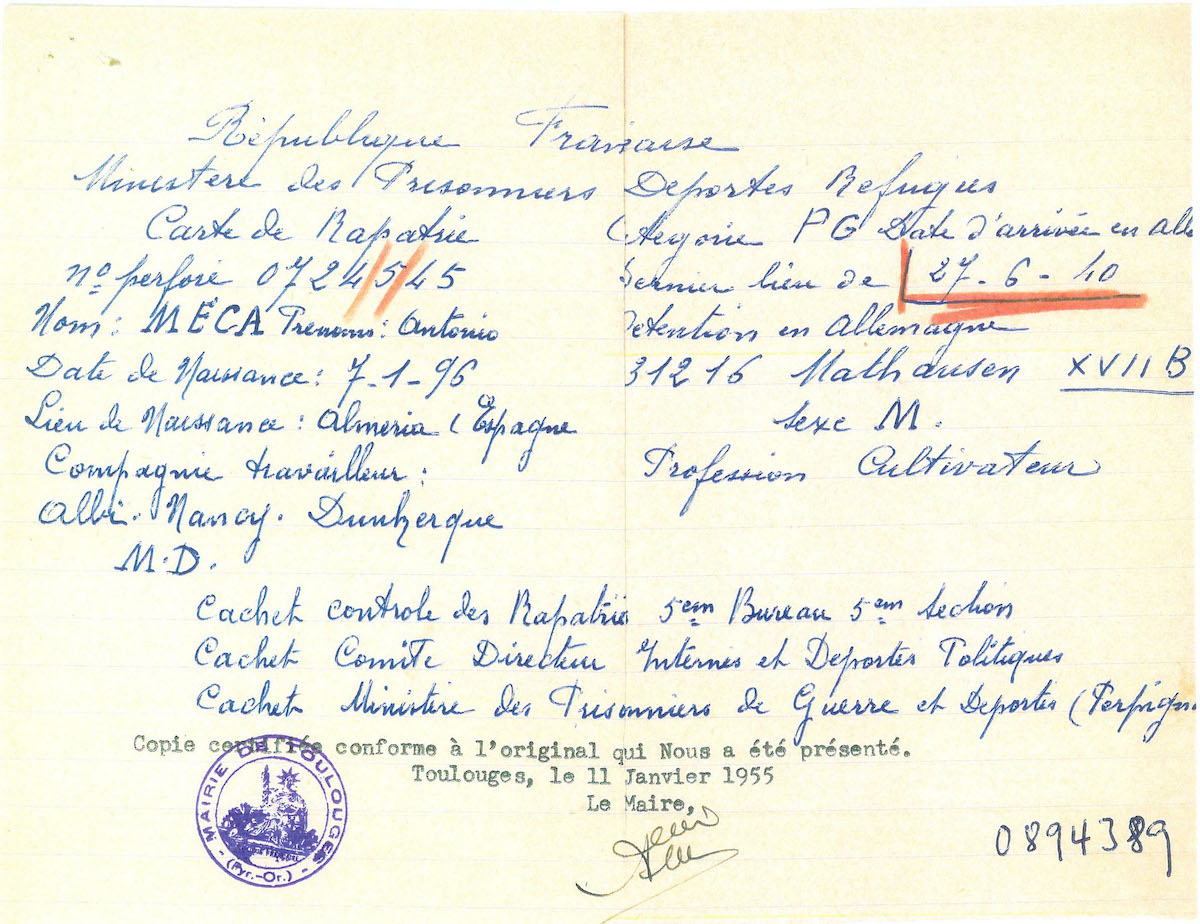 République Française
Ministere des Prisonniers Deportes Refugies
Carte de Rapatrie Categorie PG Date d'arrivée en All
nº perforé 0724/5/45 Dernier lieu de 27-6-40
Nom: MECA Prenoms: Antonio Detention en Allemagne
Date de Naissance: 7-1-96 31216 Mathausen XVII B
Lieu de Naissance: Almeria (Espagne Sexe M.
Compagnie travailleur: Profession Cultivateur
Albi. Nancy. Dunkerque
M.D.
Cachet controle des Rapatrie 5em Bureau 5em Section
Cachet Comite Directeur Internes et Deportes Politiques
Cachet Ministère des Prisonniers de Guerre et Deportes (Perpign
Copie certifiée conforme à l'original qui Nous a été présenté.
Toulouges, le 11 Janvier 1955
Le Maire,
MAIRIE DE TOULOUGES
(Pyr.-Or.)
0894389